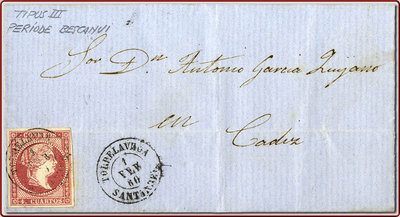 TIPUS III
PERÍODE BESCANVI
Sor Dn Antonio Garcia Quijano
en
Cadiz
CORREOS
4 CUARTOS
TORRELAVEGA
1
FEB
60
SANTANDER